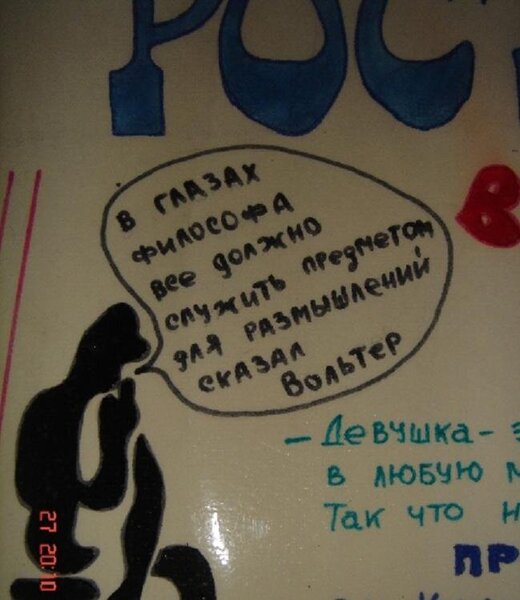 РОСТ
В ГЛАЗАХ
ФИЛОСОФА
ВСЕ ДОЛЖНО
СЛУЖИТЬ ПРЕДМЕТОМ
ДЛЯ РАЗМЫШЛЕНИЙ
СКАЗАЛ
ВОЛЬТЕР
В
- Девушка - э
в любую м
Так что н
ПР
27 20:10